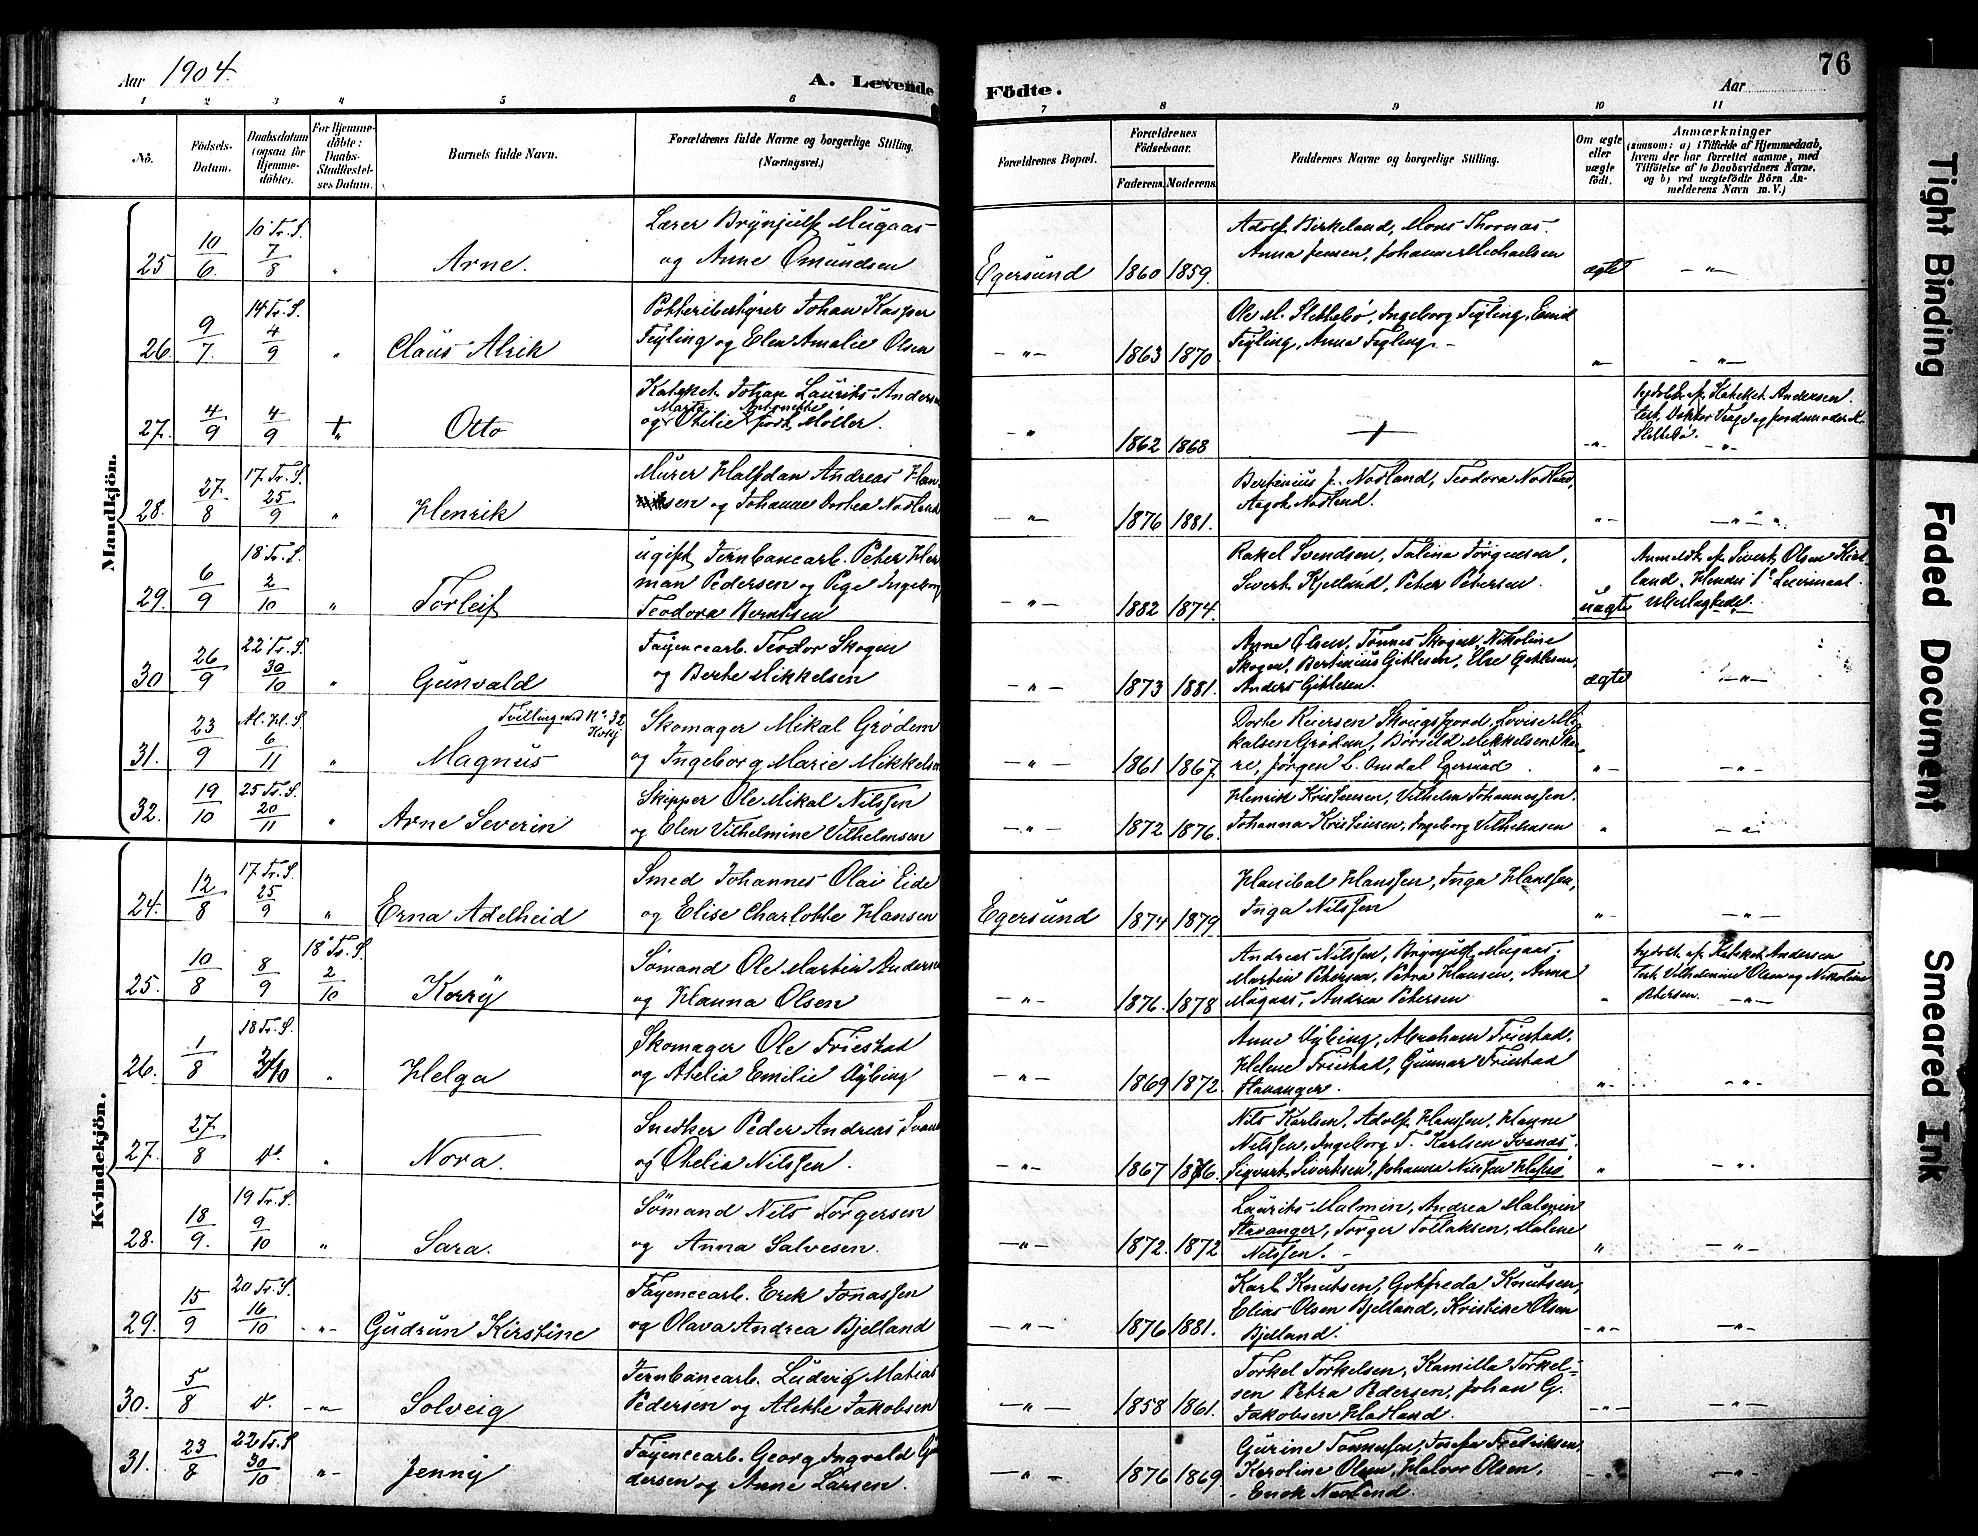 Aar 1904. A. Levende Födte. Aar 76
1 2 3 4 5 6 7 8 9 10 11
No. Födsels-Datum. Daabsdatum (ogsaa for Hjemme-döbte). For Hjemme-döbte: Daabs-Stadfæstel-ses Datum. Barnets fulde Navn. Forældrenes fulde Navne og borgerlige Stilling. (Næringsvei.) Forældrenes Bopæl. Forældrenes Födselsaar. Faderens. Moderens. Faddernes Navne og borgerlige Stilling. Om ægte eller uægte født. Anmærkninger (saasom: a) i Tilfælde af Hjemmedaab, hvem der har forrettet samme, med Tilföielse af to Daabsvidners Navne, og b) ved uægtefödte Börn An-melderens Navn m. V.)
Mandkjön.
25 10/6. 10 Tr. S. 7/8 " Arne. Lærer Brynjulf Mugaas
og Anne Omundsen Egersund 1860 1859. Adolf Birkeland, Mons Thornas.
Anna Jensen, Johanne Michaelsen ægte —"—
26. 9/7. 14 Tr. S. 4/9 " Claus Alrik Potteribestyrer Johan Kasper
Feyling og Elen Amalie Olsen —"— 1863 1870 Ole M. Slettebø, Ingeborg Feyling, Emil
Feyling, Anna Feyling. " —"—
27. 4/9 4/9 + " Otto Kateket Johan Laurits Andersen
Marta Antonette
og Otilie født Møller. —"— 1862 1868 + —"— hjdøbt af Kateket Andersen.
Slettebø.
28. 27./8 17. Tr. S. 25/9 " Henrik Murer Halfdan Andreas Han-
sen og Johanne Dorhea Nodland —"— 1876 1881. Bertinius J. Nodland, Teodora Nodland,
Aagot Nodland. —"— —"—
29. 6/9 18 Tr. S. 2/10 " Torleif ugift Jernbanearb. Peter Her
man Pedersen og Pige Ingeborg
Teodora Berntsen —"— 1882 1874. Rakel Svendsen, Talina Jørgensen,
Sivert Kjelland, Peter Petersen. uægte Anmeldt af Sivert Olsen Kjel
land. Hendes 1ste Leiermaal.
30 26/9 22 Tr. S. 30/10 " Gunvald Fayencearb. Teodor Skogen
og Berte Mikkelsen —"— 1873 1881. Anne Olsen, Tønnes Skogen, Nikoline
Skogen, Bertinius Gitlesen, Else Gitlesen,
Anders Gitlesen. ægte —"—
31. 23/9 Al. Hl. S. 6/11 " Tvilling med No. 32 Kvkj
Magnus Skomager Mikal Grødem
og Ingeborg Marie Mikkelsen —"— 1861 1867. Dorte Reiersen Skougsfjord, Lovise Mi
kalsen Grødem, Børild Mikkelsen Ska-
re, Jørgen L. Omdal Egersund —"— —"—
32. 19/10 25 Tr. S. 20/11 " Arne Severin Skipper Ole Mikal Nilssen
og Elen Vilhelmine Vilhelmsen —"— 1872 1876. Henrik Kristensen, Vilhelm Johannessen.
Johanna Kristensen, Ingeborg Vilhelmsen " —"—
Kvindekjön.
24. 12/8 17 Tr. S. 25/9 " Erna Adelheid Smed Johannes Olai Eide
og Elise Charlotte Hansen Egersund 1874 1879 Hanibal Hanssen, Inga Hanssen,
Inga Nilssen —"— —"—
25. 10/8 8/9 18 Tr. S. 2/10 Korry Sømand Ole Martin Anders
og Hanna Olsen —"— 1876. 1878 Andreas Nilssen, Brynjulf Mugaas,
Martin Petersen, Petra Hansen, Anna
Mugaas, Andrea Petersen " hjdøbt af Kateket Andersen
Test. Vilhelmine Olsen og Nikoline
Petersen. —"—
26. 1/8 18 Tr. S. 2/10 " Helga Skomager Ole Friestad
og Atelia Emilie —"— 1869 1872. Anne, Abraham Friestad,
Helene Friestad, Gunnar Friestad
Stavanger. —"— —"—
27. 27/8 do. " Nora. Snedker Peder Andreas Svan
og Otelia Nilssen. —"— 1867 1876. Nils Karlsen, Adolf Hanssen, Hanne
Nilssen, Ingeborg T. Karlsen Svanes.
Sigvart Sivertsen, Johanna Nilssen " —"—
28. 18/9. 19 Tr. S. 9/10 " Sara. Sømand Nils Torgersen
og Anna Salvesen. —"— 1872. 1872 Laurits Malmin, Andrea Malmin
Stavanger, Torger Tollaksen, Malene
Nilssen. " —"—
29. 15/9 20 Tr. S. 16/10 —"— Gudrun Kirstine Fayencearb. Erik Jonassen
og Olava Andrea Bjelland —"— 1876 1881. Karl Knutsen, Gotfreda Knutsen,
Elias Olsen Bjelland, Kristine Olsen
Bjelland. —"— —"—
30. 5/8 do. —"— Solveig Jernbanearb. Ludvig Matias
Pedersen og Alette Jakobsen —"— 1858 1861. Torkel Torkelsen, Kamilla Torkel-
sen Petra Pedersen, Johan G.
Jakobsen Hadland. —"— —"—
31. 23/8 22 Tr. S. 30/10 —"— Jenny Fayencearb. Georg Ingvald Gu
dersen og Anne Larsen. —"— 1876 1869. Gurine Tønnessen, Josefa Fredriksen,
Karoline Olsen, Halvor Olsen,
Enok Nevland. —"— —"—
Tight Binding
Faded Document
Smeared Ink